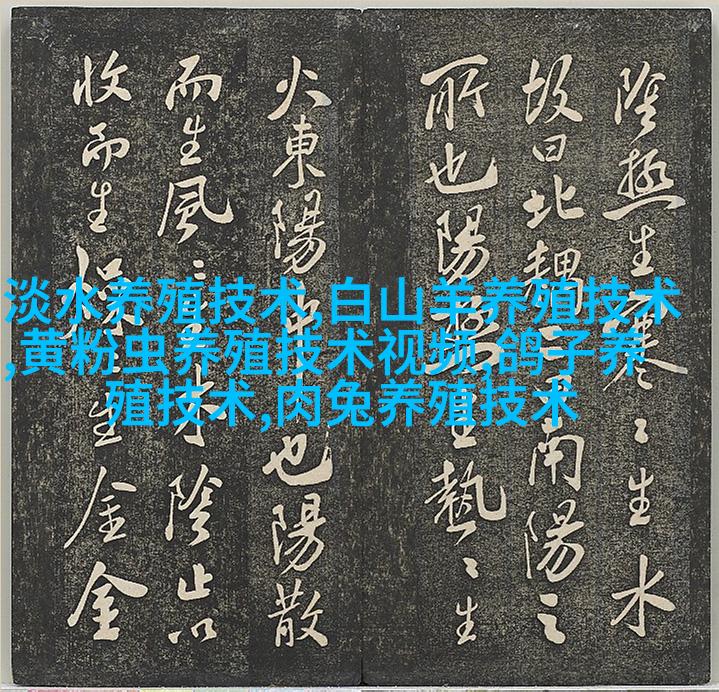 陰極生寒〻生水
故曰北耦南陽之
所也陽極生熱〻生
火東陽也陽散
而生風〻生木陰止以
收而生燥〻生金金
淡水养殖技术,白山羊养殖技术
,黄粉虫养殖技术视频,鸽子养
殖技术,肉兔养殖技术